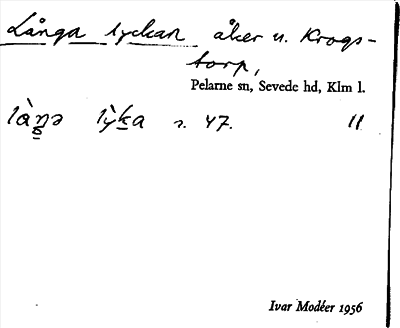 Långa lyckan åker u. Krogs-
torp,
Pelarne sn, Sevede hd, Klm l.
làŋə lỳka s. 47. 11
Ivar Modéer 1956